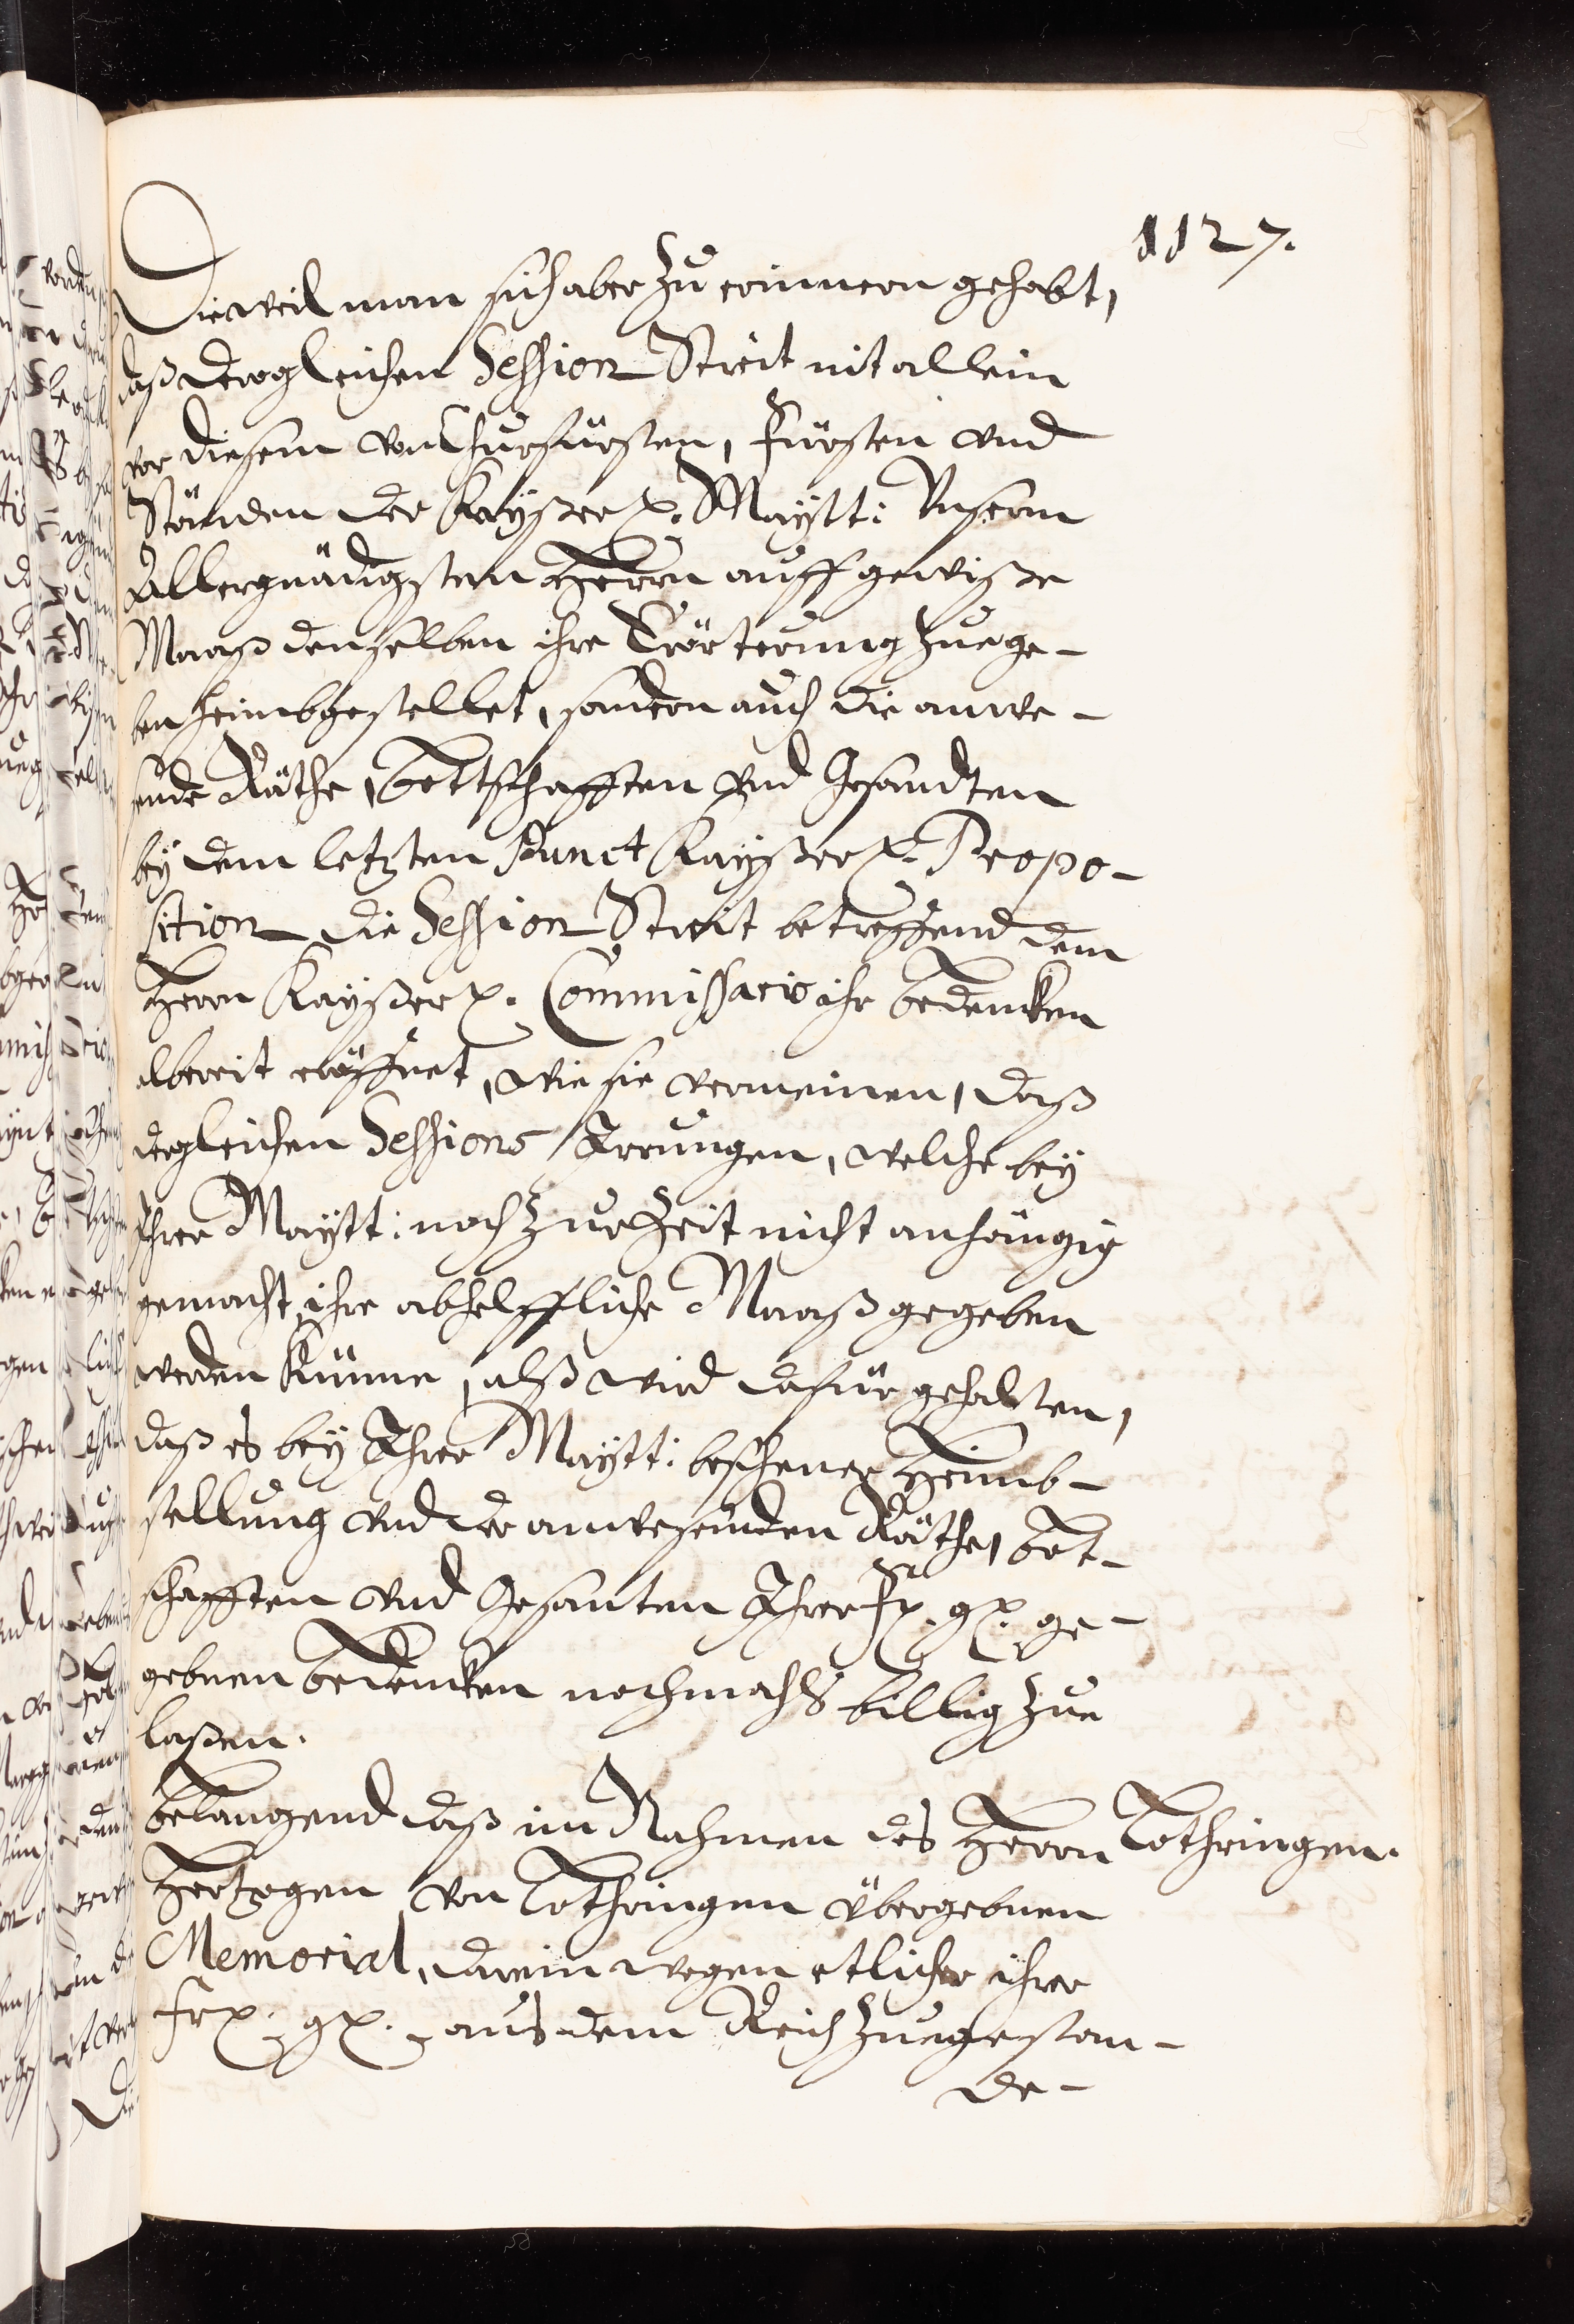 1127.
Dieweil man sich aber zu erinnern gehabt,
daß dergleichen Session Streit nit allein
vor diesem von Churfürsten, Fürsten und
Ständen der Kayßerl. Maytt: Unserm
Allergnädigsten Herrn auff gewiße
Maaß denselben ihre Erörterung zuege-
ben heimbgestellet, sondern auch die anwe-
sende Räthe, Bottschafften und Gesandten
bey dem letzten Punct Kayßerl. Propo-
sition die Session Streit betreffend dem
Herrn Kayßerl. Commissario ihr bedencken
albereit eröffnet, wie sie vermeinen, daß
dergleichen Sessions Irrungen, welche bey
Ihrer Maytt: noch zur Zeit nicht anhängig
gemacht, ihre abhelffliche Maaß gegeben
werden künne, alß wird dafür gehalten,
daß es bey Ihrer Maytt: beschener Heimb-
stellung und der anwesenden Räthe, Bot-
schafften und Gesanten Ihrer fl. gl. ge-
gebnen bedencken nochmahls billig zue
laßen.
Belangend daß im Nahmen des Herrn
Lothringen.
Hertzogen von Lothringen übergebnen
Memorial, darein wegen etlicher ihrer
frl. gl. aus dem Reich zuegestan-
de-